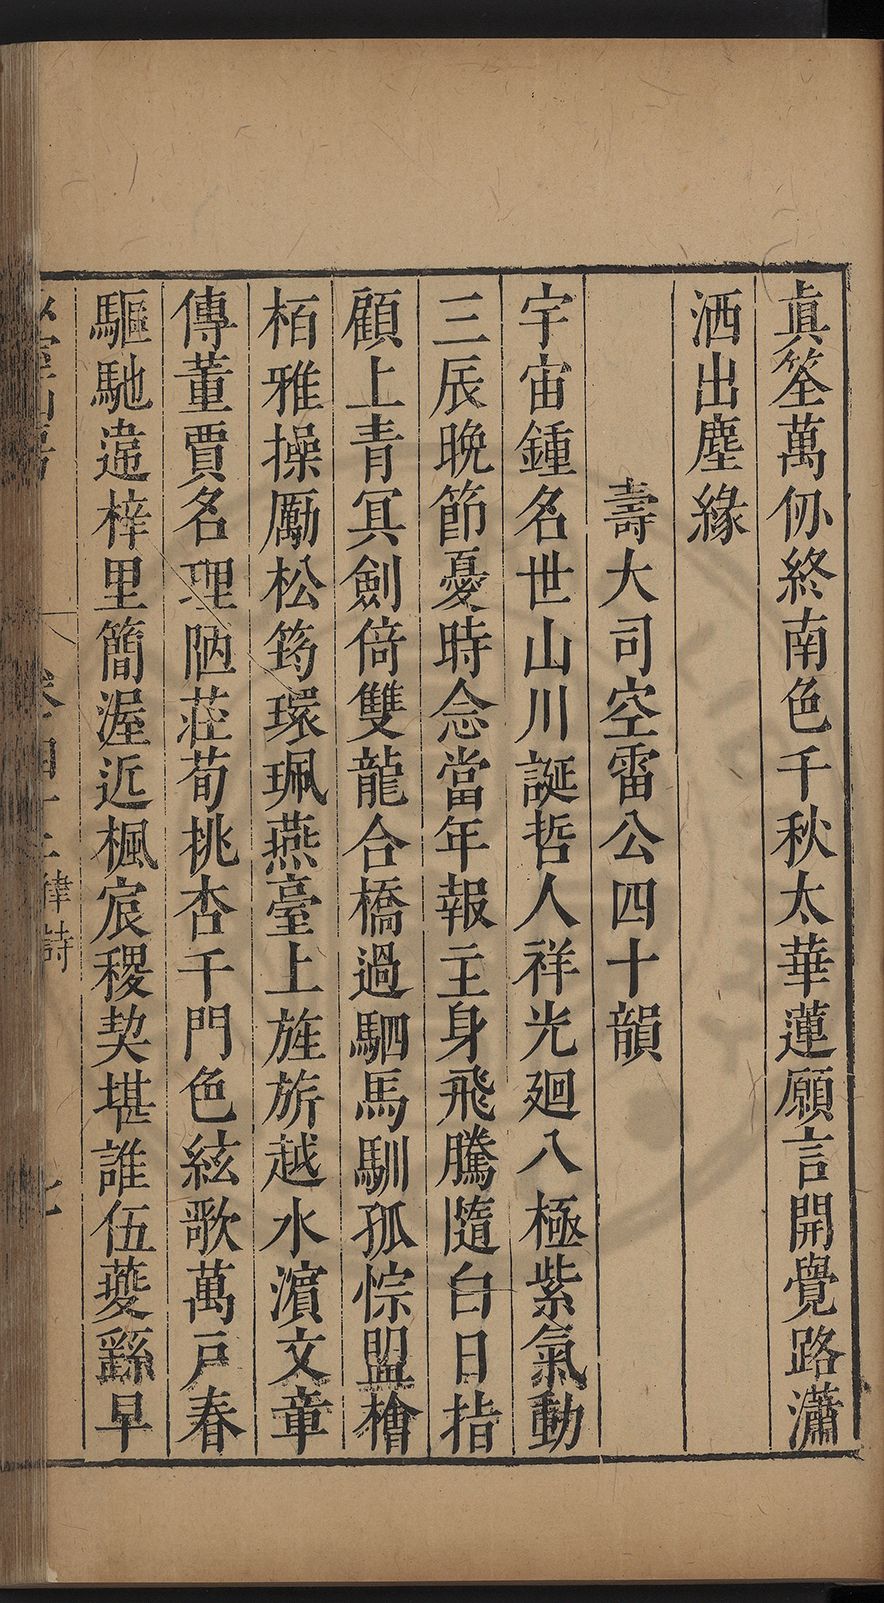 真筌萬仞終南色千秋太華蓮願言開覺路瀟
洒出塵緣
壽大司空雷公四十韻
宇宙鍾名世山川誕哲人祥光廻八極紫氣動
三辰晚節憂時念當年報主身飛騰隨白日指
顧上青冥劍倚雙龍合橋過駟馬馴孤悰盟檜
栢雅操厲松筠環珮燕臺上旌旂越水濵文章
傳董賈名理陋莊荀桃杏千門色絃歌萬戶春
驅馳違梓里簡渥近楓宸稷契堪誰伍夔繇早
卷四十三律詩 七